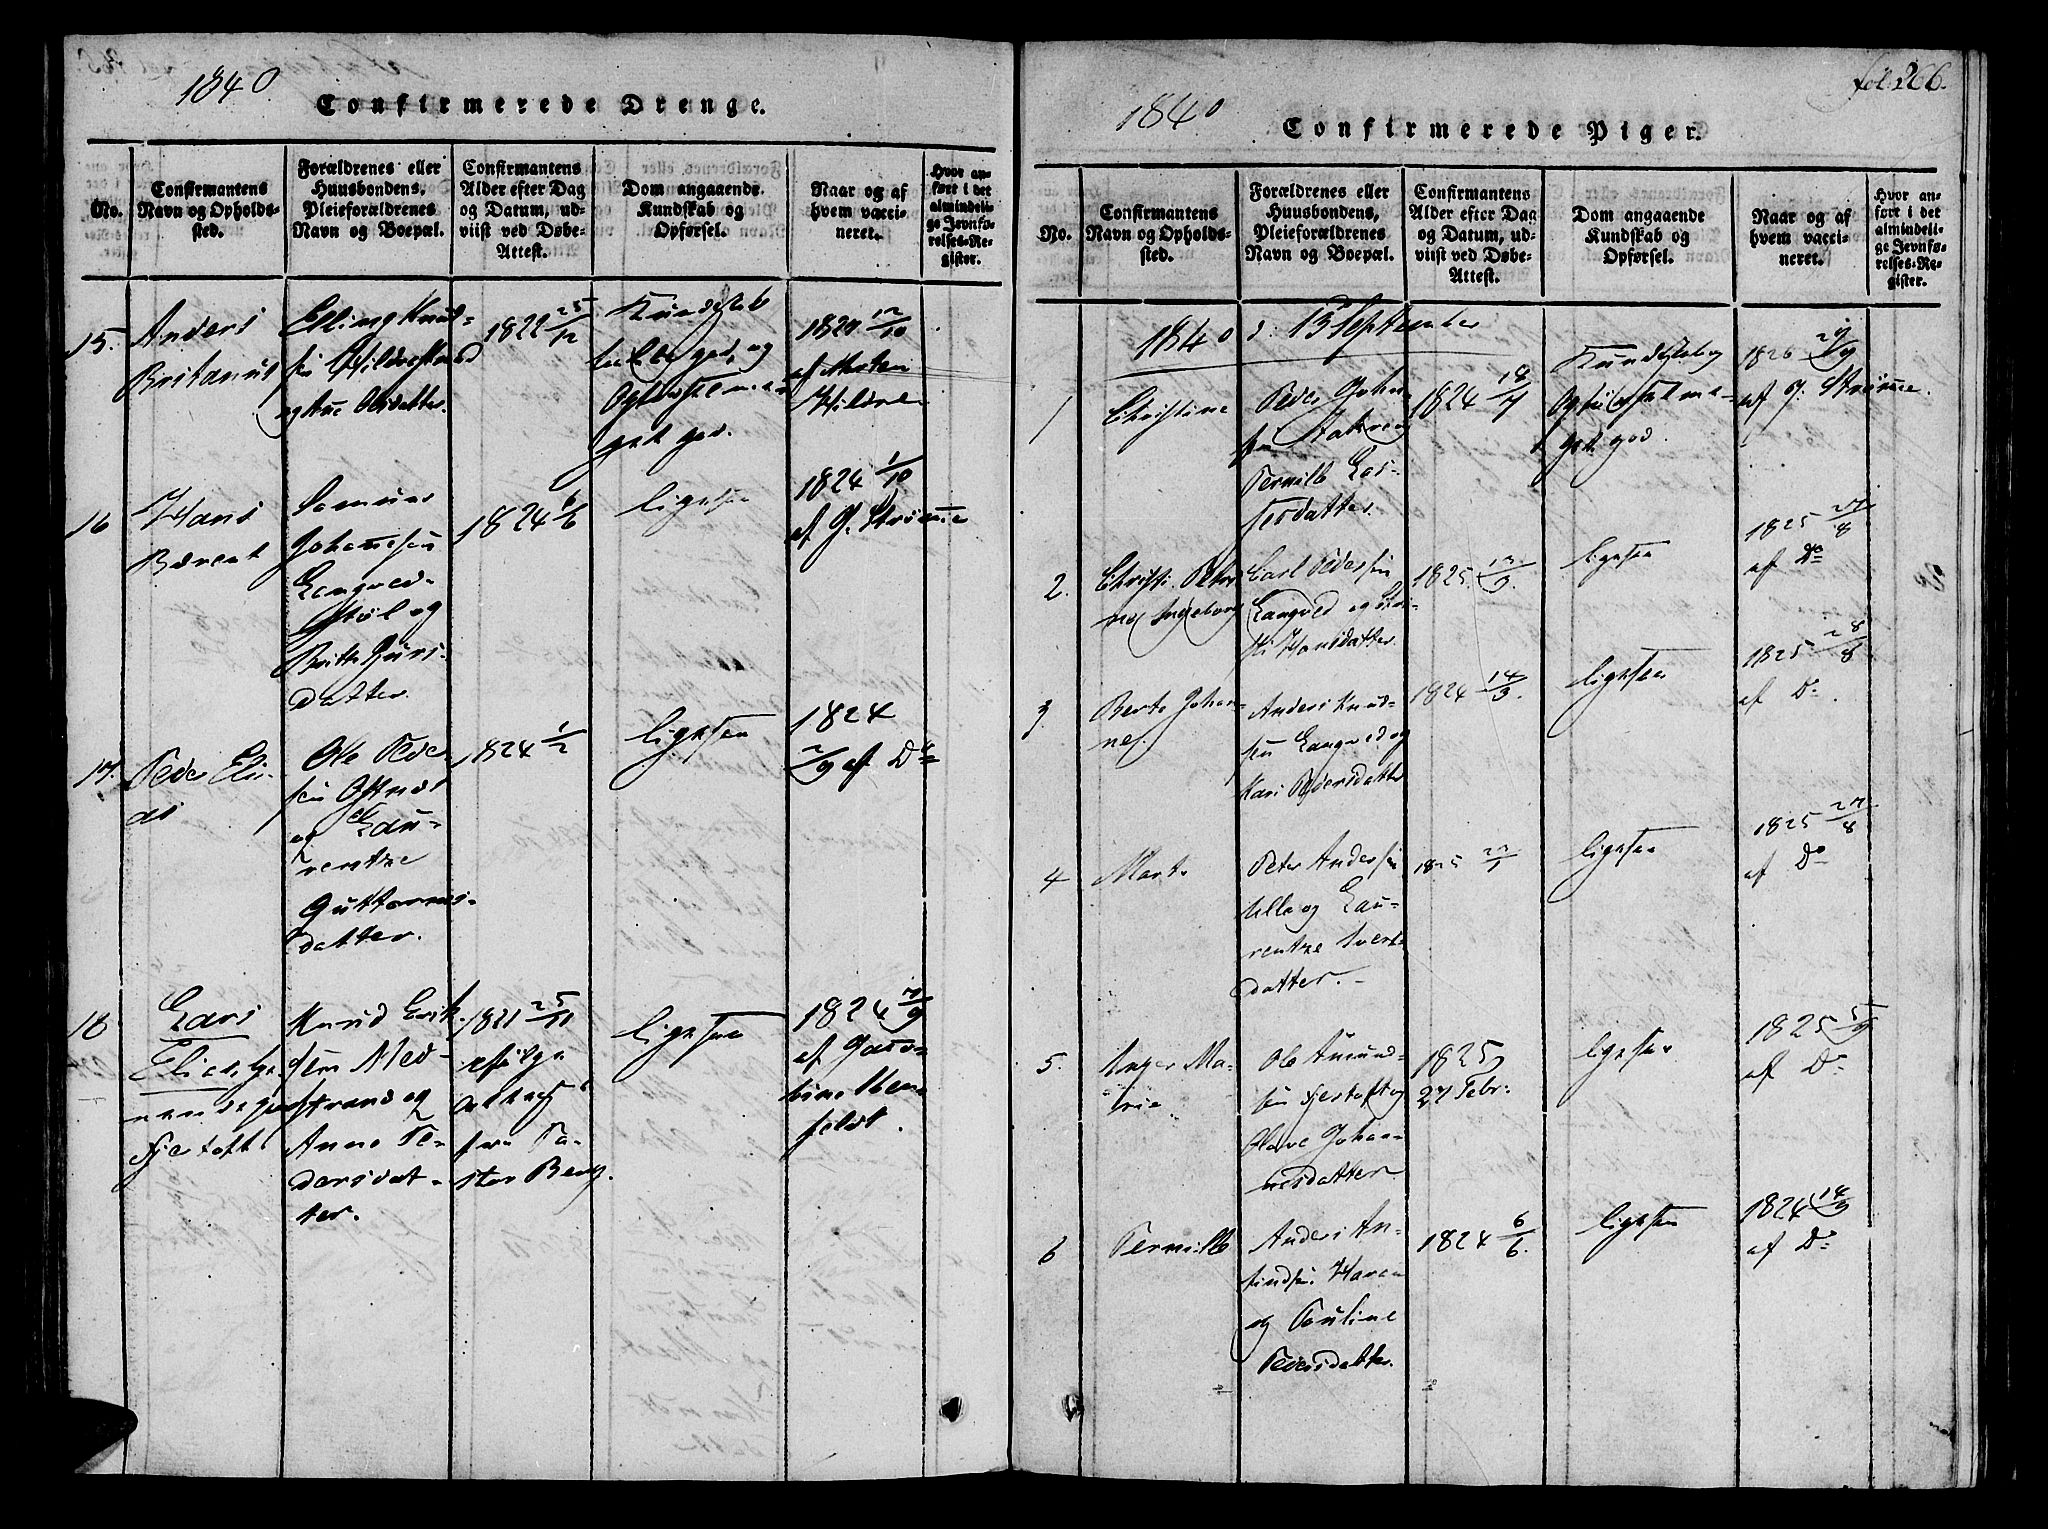 1840
Confirmerede Drenge.
No.
Confirmantens
Navn og Opholds-
sted.
Forældrenes eller
Huusbondens,
Pleieforældrenes
Navn og Boepæl.
Confirmantens
Alder efter Dag
og Datum, ud-
viist ved Døbe-
Attest.
Dom angaaende
Kundskab og
Opførsel.
Naar og af
hvem vacci-
neret.
Hvor an-
ført i det
almindeli-
ge Jevnfø-
relses-Re-
gister.
15.
Anders
Britanus
Elling Knud-
sen Hildrestrand
og Ane Olsdatter.
1822 25/12
Kundskab
god, og
Opførsel me-
get god.
af Morten
Hildre
16
Hans
Berent
Rasmus
Johansen
Langved-
støl og
Brithe Guris-
datter.
1824 6/6
ligesaa
1824 1/10
af J. Strømme
17.
Peder Eli-
as
Ole Peder-
sen Østnes
og Lau-
rentze
Guttorms-
datter.
1824 1/2
ligesaa
1824
2/9 af Do
18
Lars
Elias,
Fjertoft
Knud Erik-
sen Med-
strand og
Anne Pe-
dersdat-
ter.
1821 25/11
ifølge
Attest
fra Pa-
stor Berg.
ligesaa
1824 7/9
af
feldt.
fol: 266.
1840
Confirmerede Piger.
No.
Confirmantens
Navn og Opholds-
sted.
Forældrenes eller
Huusbondens,
Pleieforældrenes
Navn og Boepæl.
Confirmantens
Alder efter Dag
og Datum, ud-
viist ved Døbe-
Attest.
Dom angaaende
Kundskab og
Opførsel.
Naar og af
hvem vacci-
neret.
Hvor an-
ført i det
almindeli-
ge Jevnfø-
relses-Re-
gister.
1840 d: 13 September
1
Christine
Peder Johan-
sen og
Pernille Las-
sesdatter.
1824 18/7
Kundskab og
Opførsel me-
get god.
1826 27/9
af J. Strømme.
2.
Christi. Petri-
ne Ingeborg
Carl Pedersen
Langved og
Hansdatter.
1825
ligesaa
1825 27/8
af Do
3
Berte Johan-
ne.
Anders Knud-
sen Langved og
Kari Pedersdatter
1824 14/3.
ligesaa
1825 28/8
af Do.
4
Marte
Peter Andersen
Ulla og Lau-
rentze Ivers-
datter.
1825 22/1
ligesaa
1825 27/8
af Do
5.
Inger Ma-
rie
Ole Amund-
sen Fjertoft og
Olave Johan-
nesdatter.
1825
27 Febr:
ligesaa
1825 5/9
af Do
6
Pernille
Anders An-
sen. Haren
og Pauline
Pedersdatter.
1824 6/6.
ligesaa
1824 14/9
af Do